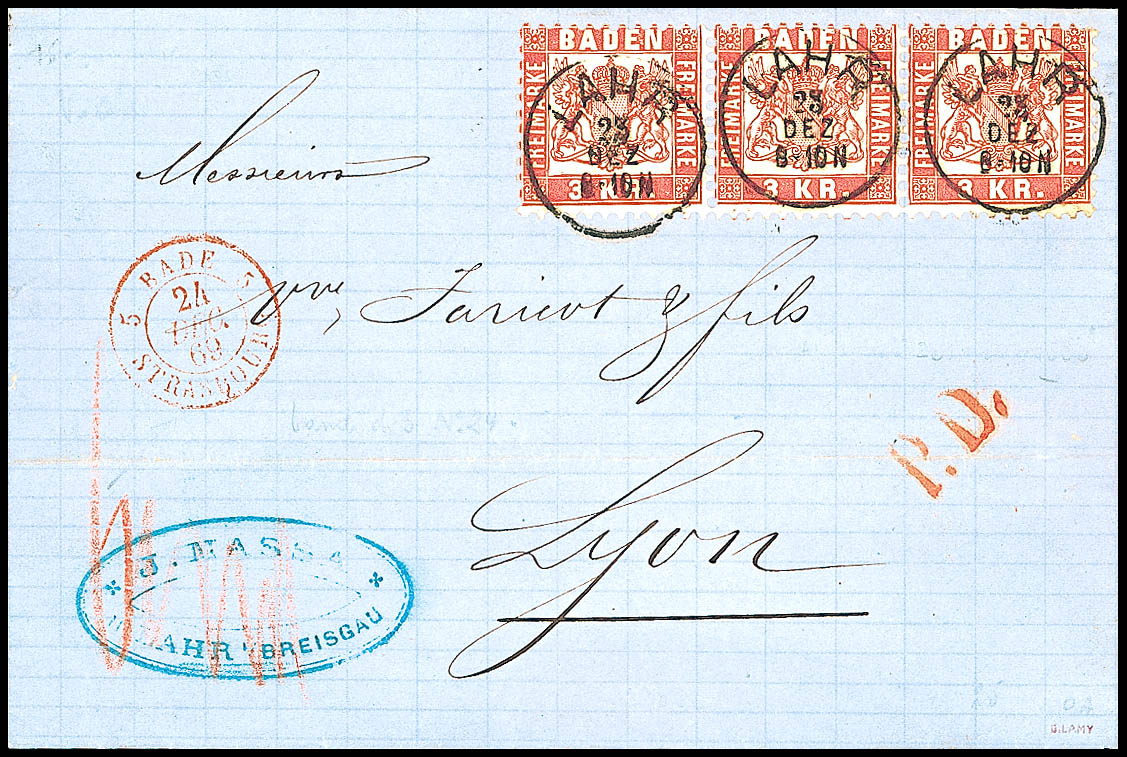 BADEN BADEN BADEN
FREIMARKE FREIMARKE FREIMARKE FREIMARKE FREIMARKE FREIMARKE
3 KR. 3 KR. 3 KR.
LAHR LAHR LAHR
23 DEZ 8-10N
23 DEZ 8-10N
23 DEZ 8-10N
Messieurs
5 BADE 5
24
DEC.
69
STRASBOURG
Vve Jaricot & fils
P.D.
Lyon
J. MASSA
LAHR BREISGAU
B.LAMY